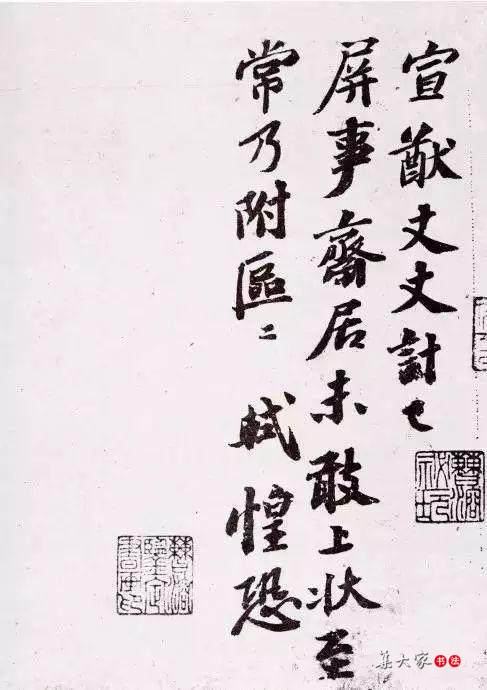 宣猷丈丈計已
屏事齋居未敢上狀至
常乃附區〻 軾惶恐
集大家 书法